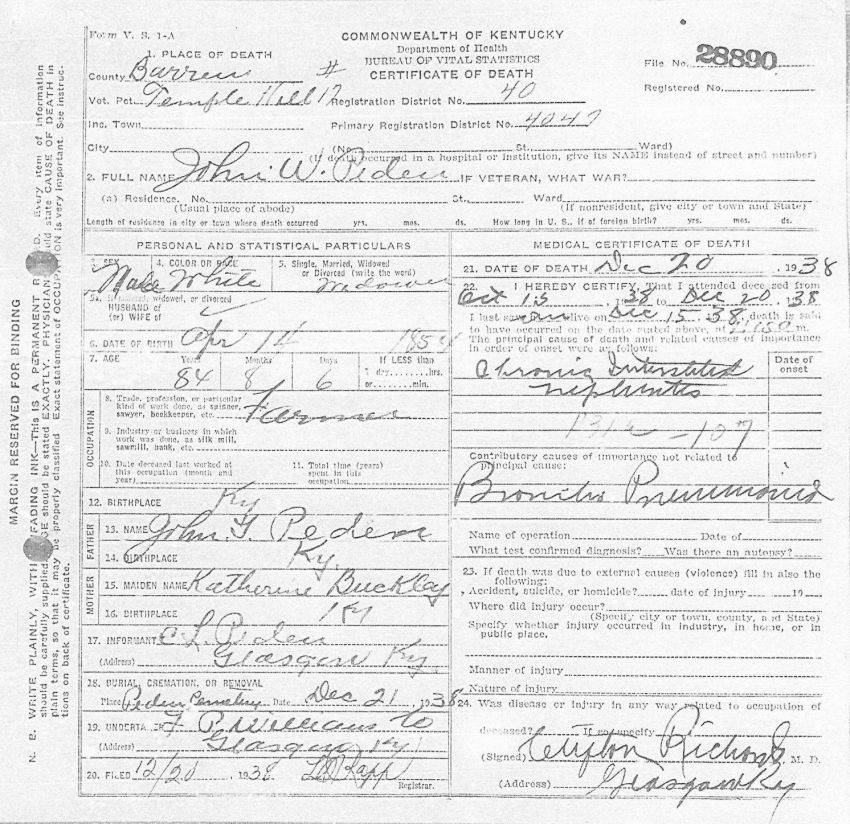 Form V. S. 1-A
COMMONWEALTH OF KENTUCKY
Department of Health
BUREAU OF VITAL STATISTICS
CERTIFICATE OF DEATH
File No. 28890
Registered No.
1. PLACE OF DEATH
County Barren #
Vot. Pct. Temple Hill 17 Registration District No. 40
Inc. Town Primary Registration District No. 4047
City (No. St. Ward)
(If death occurred in a hospital or institution, give its NAME instead of street and number)
2. FULL NAME John W. Peden IF VETERAN, WHAT WAR?
(a) Residence. No. St., Ward
(Usual place of abode) (If nonresident, give city or town and State)
Length of residence in city or town where death occurred yrs. mos. ds. How long in U. S., if of foreign birth? yrs. mos. ds.
PERSONAL AND STATISTICAL PARTICULARS
3. SEX 4. COLOR OR RACE 5. Single, Married, Widowed
or Divorced (write the word)
Male White Widower
5a. If married, widowed, or divorced
HUSBAND of
(or) WIFE of
6. DATE OF BIRTH Apr 14 1854
7. AGE Years Months Days If LESS than
1 day hrs.
84 8 6 or min.
OCCUPATION
8. Trade, profession, or particular
kind of work done, as spinner,
sawyer, bookkeeper, etc. Farmer
9. Industry or business in which
work was done, as silk mill,
sawmill, bank, etc.
10. Date deceased last worked at
this occupation (month and
year)
11. Total time (years)
spent in this
occupation
12. BIRTHPLACE Ky
FATHER
13. NAME John F Peden
14. BIRTHPLACE Ky.
MOTHER
15. MAIDEN NAME Katherine Buckley
16. BIRTHPLACE Ky
17. INFORMANT C L Peden
(Address) Glasgow Ky.
18. BURIAL, CREMATION, OR REMOVAL
Place Peden Cemetery Date Dec 21 1938
19. UNDERTAKER F P Williams Co
(Address) Glasgow Ky
20. FILED 12/20 1938 Rapp
Registrar.
MEDICAL CERTIFICATE OF DEATH
21. DATE OF DEATH Dec 20 1938
22. I HEREBY CERTIFY, That I attended deceased from
Oct 15 1938 to Dec 20 1938
I last saw him alive on Dec 15-38, death is said
to have occurred on the date stated above, at m.
The principal cause of death and related causes of importance
in order of onset were as follows:
Date of
onset
Chronic Interstitial
nephritis
131a-107
Contributory causes of importance not related to
principal cause:
Broncho Pneumonia
Name of operation Date of
What test confirmed diagnosis? Was there an autopsy?
23. If death was due to external causes (violence) fill in also the
following:
Accident, suicide, or homicide? date of injury 19
Where did injury occur?
(Specify city or town, county, and State)
Specify whether injury occurred in industry, in home, or in
public place.
Manner of injury
Nature of injury
24. Was disease or injury in any way related to occupation of
deceased? If so specify
(Signed) Clifton Richards, M. D.
(Address) Glasgow Ky
MARGIN RESERVED FOR BINDING
N. B. WRITE PLAINLY, WITH FADING INK—THIS IS A PERMANENT Every item of information
should be carefully supplied. should be stated EXACTLY. PHYSICIAN state CAUSE OF DEATH in
plain terms, so that it may be properly classified. Exact statement of OCCUPATION is very important. See instruc-
tions on back of certificate.